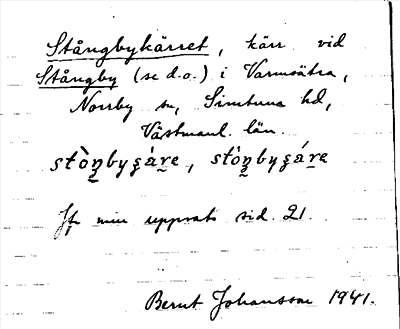 Stångbykärret, kärr vid
Stångby (se d.o.) i Varmsätra,
Norrby sn, Simtuna hd,
Västmanl. län.
stòŋbygáre, stòŋbygáre
Jfr min uppsats sid. 21.
Bernt Johansson 1941.